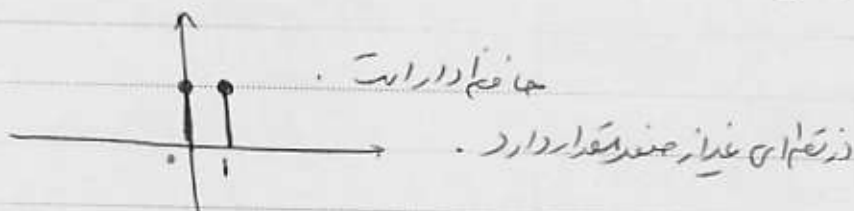 حافظه‌دار است .
در نقطه‌ای غیر از صفر مقدار دارد .
۰ ۱